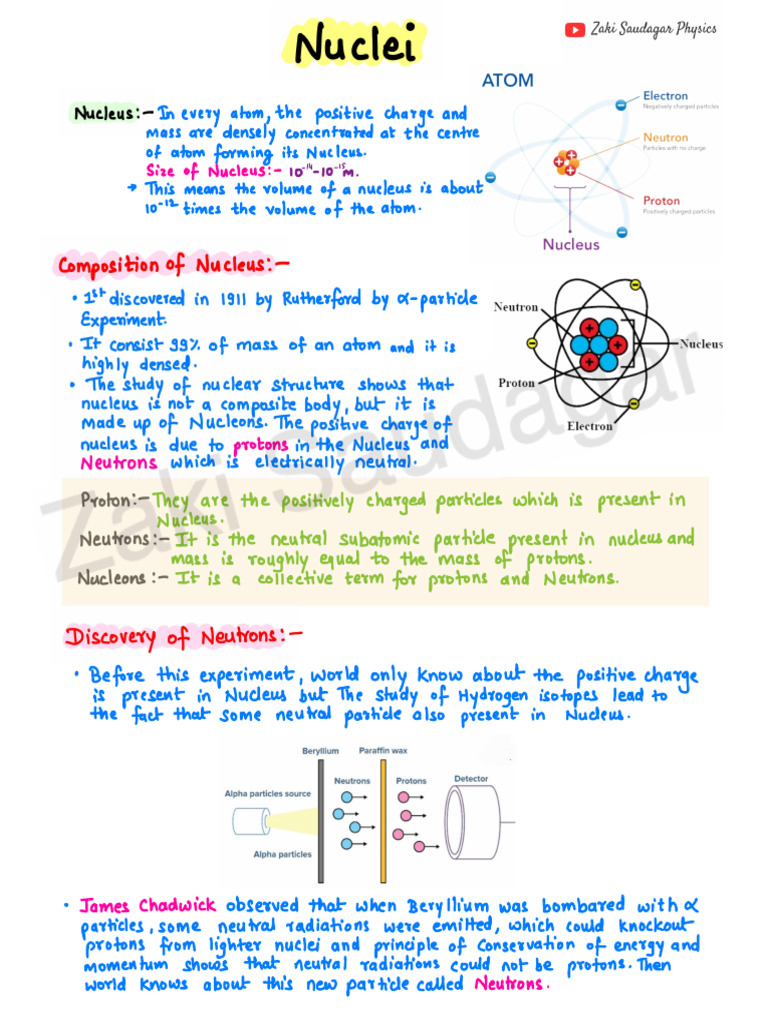 Nuclei
Zaki Saudagar Physics
ATOM
Electron
Negatively charged particles
Neutron
Particles with no charge
Proton
Positively charged particles
Nucleus
Nucleus:- In every atom, the positive charge and
mass are densely concentrated at the centre
of atom forming its Nucleus.
Size of Nucleus:- 10⁻¹⁴-10⁻¹⁵m.
→ This means the volume of a nucleus is about
10⁻¹² times the volume of the atom.
Composition of Nucleus:-
• 1st discovered in 1911 by Rutherford by α-particle
Experiment.
• It consist 99% of mass of an atom and it is
highly densed.
• The study of nuclear structure shows that
nucleus is not a composite body, but it is
made up of Nucleons. The positive charge of
nucleus is due to protons in the Nucleus and
Neutrons which is electrically neutral.
Neutron
Nucleus
Proton
Electron
Zaki Saudagar
Proton:- They are the positively charged particles which is present in
Nucleus.
Neutrons:- It is the neutral subatomic particle present in nucleus and
mass is roughly equal to the mass of protons.
Nucleons:- It is a collective term for protons and Neutrons.
Discovery of Neutrons:-
• Before this experiment, world only know about the positive charge
is present in Nucleus but The study of Hydrogen isotopes lead to
the fact that some neutral particle also present in Nucleus.
Beryllium Paraffin wax
Neutrons Protons Detector
Alpha particles source
Alpha particles
• James Chadwick observed that when Beryllium was bombared with α
particles, some neutral radiations were emitted, which could knockout
protons from lighter nuclei and principle of Conservation of energy and
momentum shows that neutral radiations could not be protons. Then
world knows about this new particle called Neutrons.